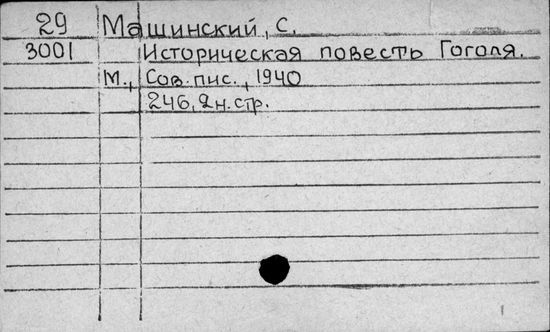 29 Машинский, С.
3001 Историческая повесть Гоголя.
М., Сов. пис., 1940
246, 2 н. стр.